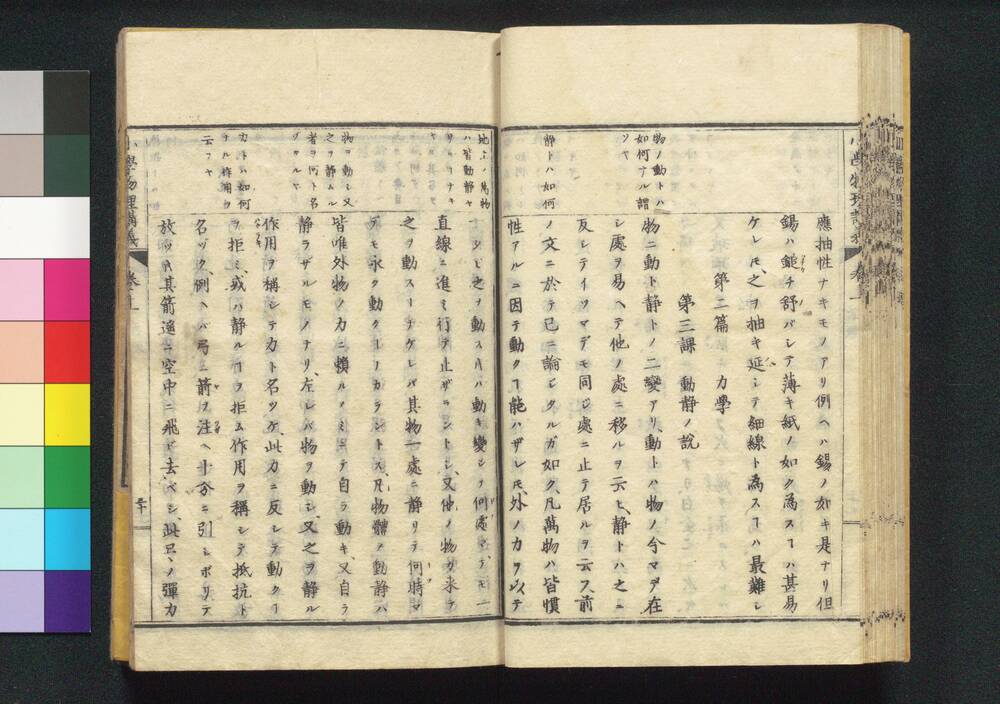 應抽性ナキモノアリ例ヘハ錫ノ如キ是ナリ但
錫ハ鎚チ舒バシテ薄キ紙ノ如ク為スヿハ甚易
ケレ𪜈、之ヲ抽キ延シテ細線ト為スヿハ最難シ
第二篇 力學
第三課 動靜ノ説
物ノ動トハ
如何ナル謂
ソヤ
物ニ動ト静トノ二變アリ動トハ物ノ今マデ在
シ處ヲ易ヘテ他ノ處ニ移ルヲ云ヒ、静トハ之ニ
反シテイツマデモ同ジ處ニ止テ居ルヲ云フ前
静トハ如何
ノ文ニ於テ已ニ論ジタルガ如ク、凡萬物ハ皆慣
性アルニ因テ動クヿ能ハザレ𪜈、外ノ力
地上ノ萬物
ハ皆動静ヤ
一タビ之ヲ動スキハ動キ變シテ何處マデモ一
直線ニ進ミ行テ止ザラントシ、又他ノ物ガ来テ
之ヲ動スヿナケレバ其物一處ニ静リテ何時マ
デモ永ク動クヿナカラントス、凡物體ノ動静ハ
物ヲ動シ又
之ヲ静ムル
者ヲ何ト名
ヅクルヤ
皆唯外物ノ力ニ頼ルノミニテ自ラ動キ、又自ラ
静ラザルモノナリ、左レバ物ヲ動シ、又之ヲ静ル
作用ヲ稱シテ力ト名ツケ、此力ニ反シテ動クヿ
力トハ如何
ナル作用ヲ
云フヤ
ヲ拒ミ、或ハ静ルヿヲ拒ム作用ヲ稱シテ抵抗ト
名ヅク、例ヘバ弓ニ箭ヲ注ヘ十分ニ引シボリテ
放ツキ其箭遥ニ空中ニ飛ビ去ベシ、此只ソノ彈力
小學物理講義 巻之一